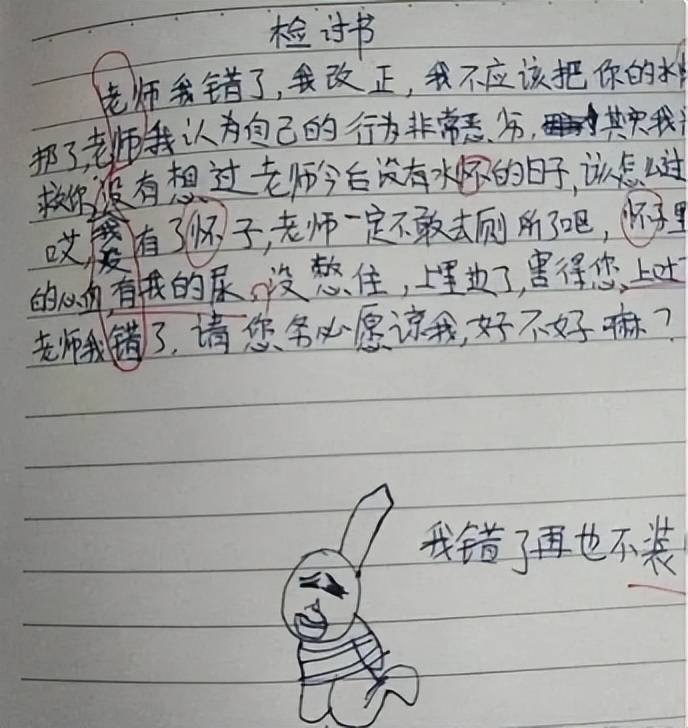 检讨书
老师我错了,我改正,我不应该把你的水
那了,老师我认为自己的行为非常恶劣,其实我
救你没有想过老师今后没有水怀的日子,该怎么过
哎,我没有了怀子,老师一定不敢去厕所了吧,怀子里
的心血,有我的尿,没憋住,上里边了,害得您上吐
老师我错了,请您务必愿谅我,好不好嘛?
我错了再也不装